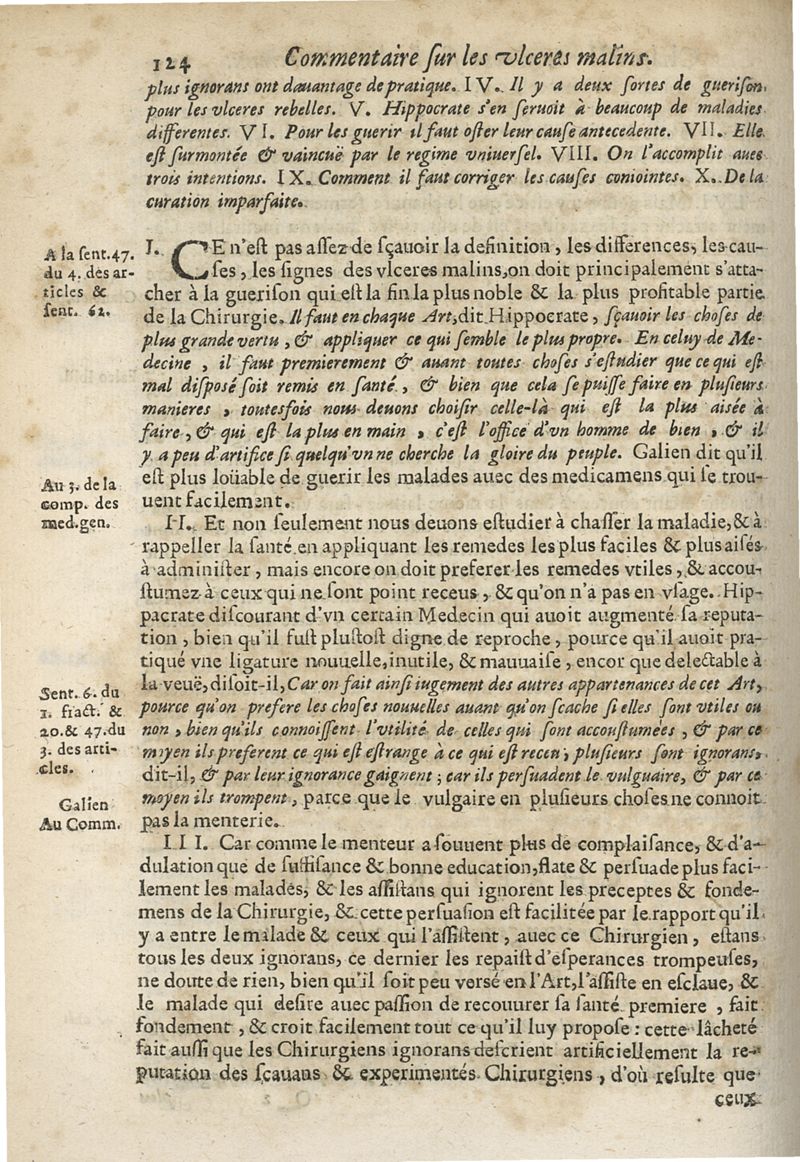 124 Commentaire ſur les vlceres malins.
plus ignorans ont dauantage de pratique. IV. Il y a deux ſortes de gueriſon
pour les vlceres rebelles. V. Hippocrate s'en ſeruoit à beaucoup de maladies
differentes. VI. Pour les guerir il faut oſter leur cauſe antecedente. VII. Elle
eſt ſurmontée & vaincuë par le regime vniuerſel. VIII. On l'accomplit auec
trois intentions. IX. Comment il faut corriger les cauſes coniointes. X. De la
curation imparfaite.
A la ſent. 47.
du 4. des ar-
ticles &
ſent. 62.
I. CE n'eſt pas aſſez de ſçauoir la definition, les differences, les cau-
ſes, les ſignes des vlceres malins, on doit principalement s'atta-
cher à la gueriſon qui eſt la fin la plus noble & la plus profitable partie
de la Chirurgie. Il faut en chaque Art, dit Hippocrate, ſçauoir les choſes de
plus grande vertu, & appliquer ce qui ſemble le plus propre. En celuy de Me-
decine, il faut premierement & auant toutes choſes s'eſtudier que ce qui eſt
mal diſposé ſoit remis en ſanté, & bien que cela ſe puiſſe faire en pluſieurs
manieres, toutesfois nous deuons choiſir celle-là qui eſt la plus aisée à
faire, & qui eſt la plus en main, c'eſt l'office d'vn homme de bien, & il
y a peu d'artifice ſi quelqu'vn ne cherche la gloire du peuple. Galien dit qu'il
eſt plus loüable de guerir les malades auec des medicamens qui ſe trou-
uent facilement.
Au 3. de la
comp. des
med. gen.
II. Et non ſeulement nous deuons eſtudier à chaſſer la maladie, & à
rappeller la ſanté en appliquant les remedes les plus faciles & plus aiſés
à adminiſter, mais encore on doit preferer les remedes vtiles, & accou-
ſtumez à ceux qui ne ſont point receus, & qu'on n'a pas en vſage. Hip-
pacrate diſcourant d'vn certain Medecin qui auoit augmenté ſa reputa-
tion, bien qu'il fuſt pluſtoſt digne de reproche, pource qu'il auoit pra-
tiqué vne ligature nouuelle, inutile, & mauuaiſe, encor que delectable à
la veuë, diſoit-il, Car on fait ainſi iugement des autres appartenances de cet Art,
pource qu'on prefere les choſes nouuelles auant qu'on ſcache ſi elles ſont vtiles ou
non, bien qu'ils connoiſſent l'vtilité de celles qui ſont accouſtumées, & par ce
moyen ils preferent ce qui eſt eſtrange à ce qui eſt receu, pluſieurs ſont ignorans,
dit-il, & par leur ignorance gaignent; car ils perſuadent le vulguaire, & par ce
moyen ils trompent, parce que le vulgaire en pluſieurs choſes ne connoit
pas la menterie.
Sent. 6. du
1. fract. &
20. & 47. du
3. des arti-
cles.
Galien
Au Comm.
III. Car comme le menteur a ſouuent plus de complaiſance, & d'a-
dulation que de ſuffiſance & bonne education, flate & perſuade plus faci-
lement les malades, & les aſſiſtans qui ignorent les preceptes & fonde-
mens de la Chirurgie, & cette perſuaſion eſt facilitée par le rapport qu'il
y a entre le malade & ceux qui l'aſſiſtent, auec ce Chirurgien, eſtans
tous les deux ignorans, ce dernier les repaiſt d'eſperances trompeuſes,
ne doute de rien, bien qu'il ſoit peu versé en l'Art, l'aſſiſte en eſclaue, &
le malade qui deſire auec paſſion de recouurer ſa ſanté premiere, fait
fondement, & croit facilement tout ce qu'il luy propoſe: cette lâcheté
fait auſſi que les Chirurgiens ignorans deſcrient artificiellement la re-
putation des ſcauans & experimentés Chirurgiens, d'où reſulte que
ceux